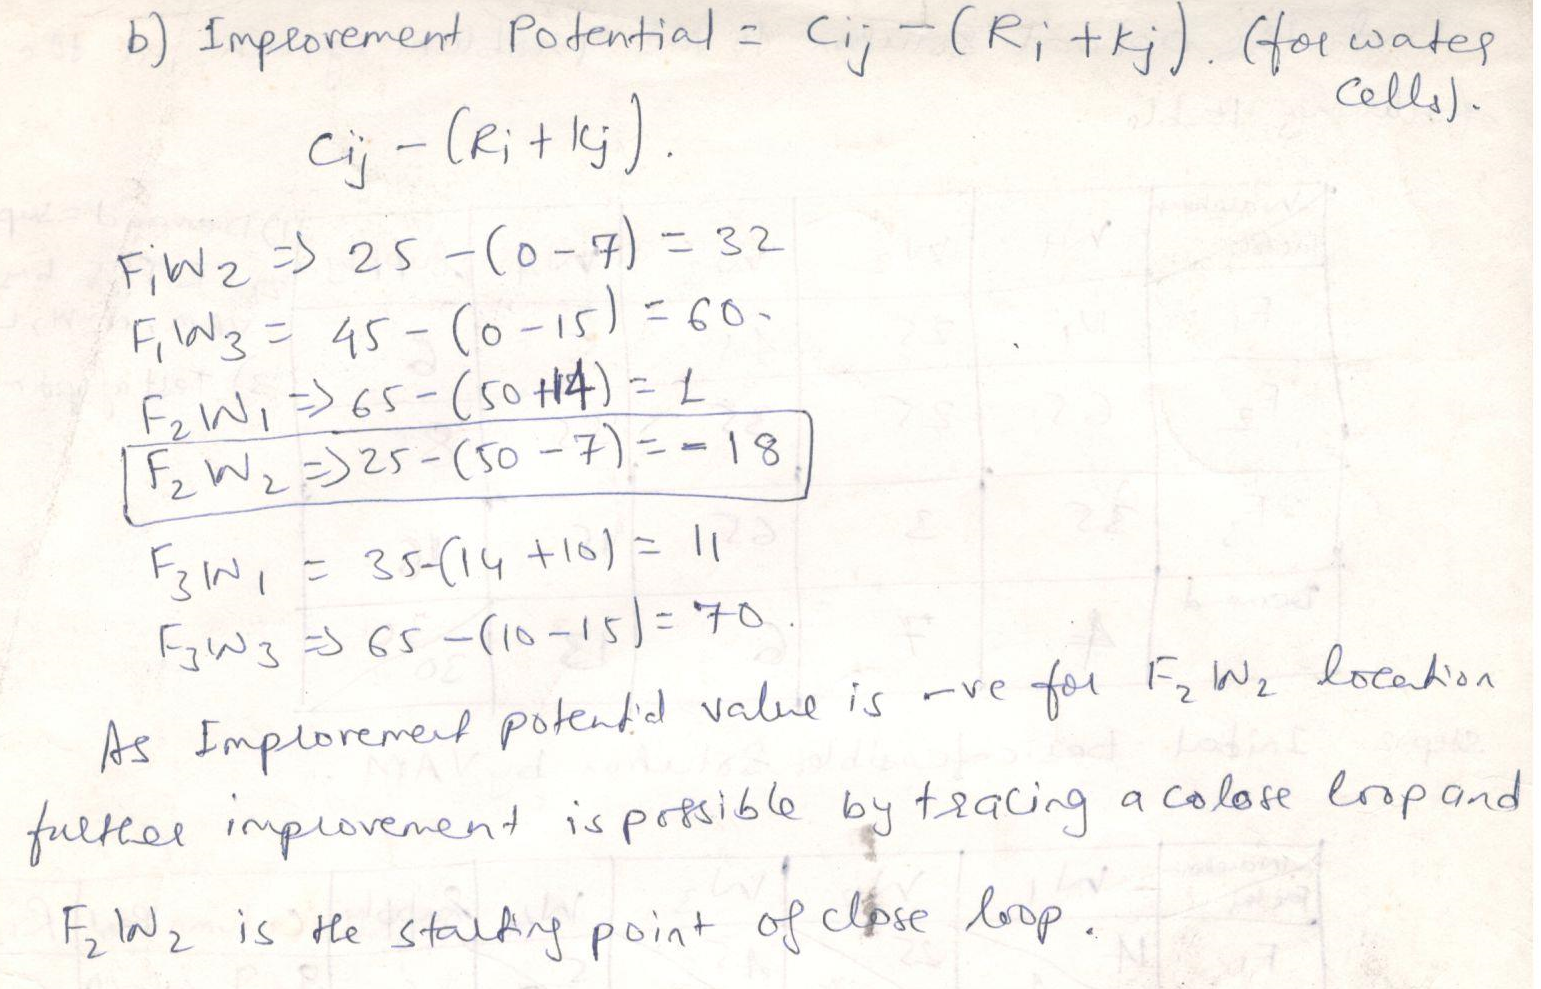 b) Improvement Potential = Cij - (Ri + Kj). (for water
Cells).
Cij - (Ri + Kj).
F1W2 => 25 - (0 - 7) = 32
F1W3 = 45 - (0 - 15) = 60.
F2W1 => 65 - (50 + 14) = 1
F2W2 => 25 - (50 - 7) = - 18
F3W1 = 35-(14 + 10) = 11
F3W3 => 65 - (10 - 15) = 70.
As Improvement potential value is -ve for F2W2 location
further improvement is possible by tracing a colose loop and
F2W2 is the starting point of close loop.